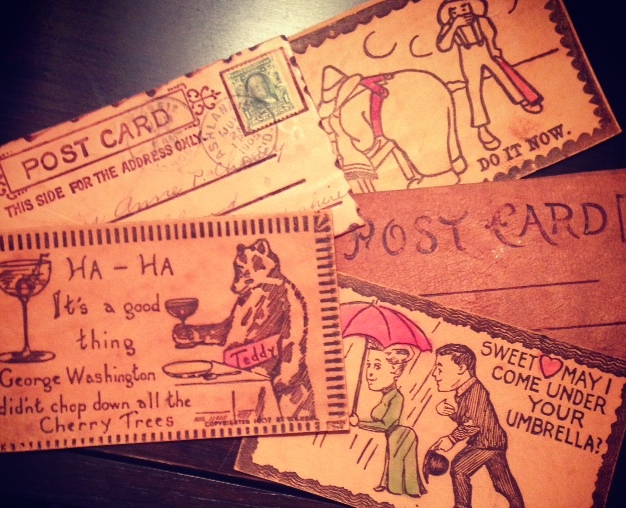 POST CARD
THIS SIDE FOR THE ADDRESS ONLY.
DO IT NOW.
POST CARD
HA - HA
It's a good
thing
George Washington
didnt chop down all the
Cherry Trees
Teddy
SWEET MAY I
COME UNDER
YOUR
UMBRELLA?